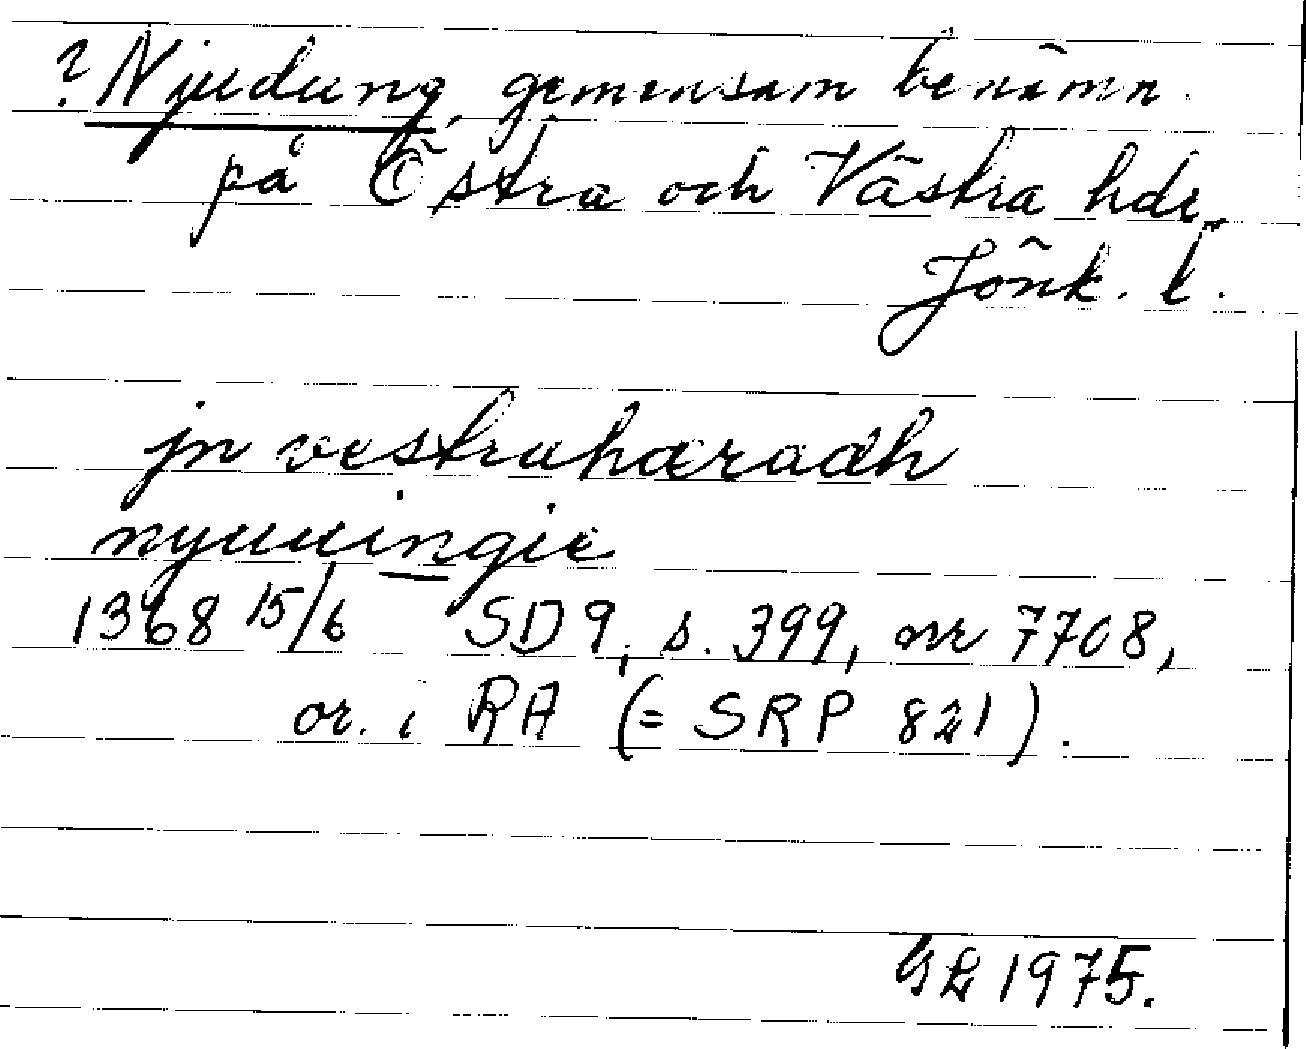 ? Njudung, gemensam benämn.
på Östra och Västra hdr,
Jönk. l.
jn vestrahæradh
nyuuingie
1368 15/6 SD 9, s. 399, nr 7708,
or. i RA (= SRP 821).
GL 1975.